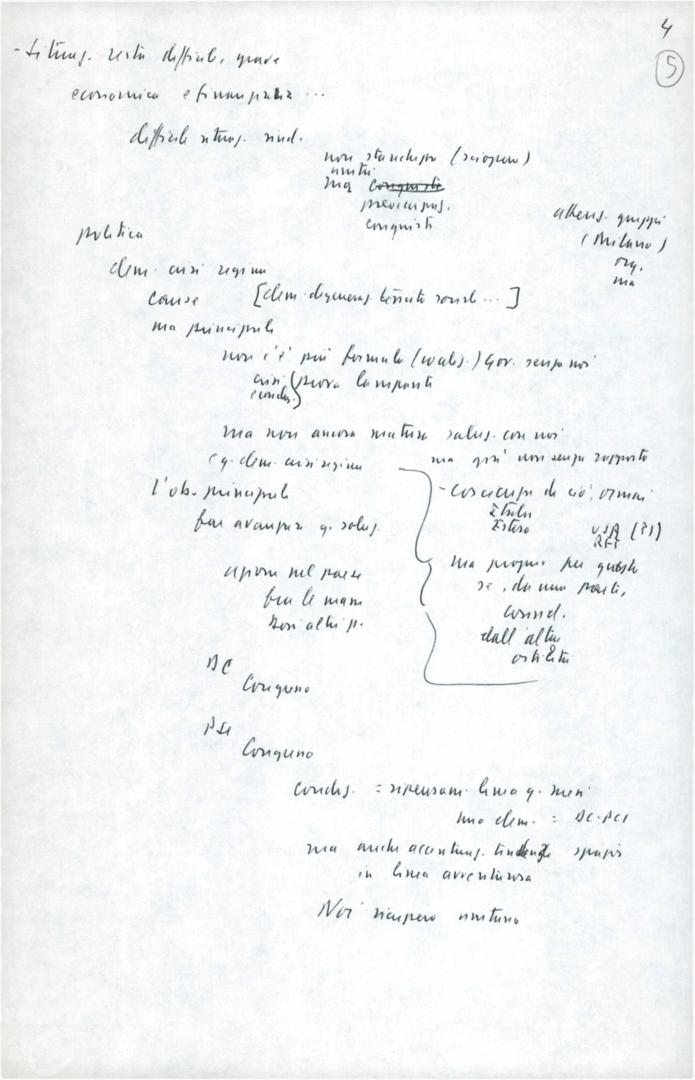 4
5
- Situaz. resta difficile, grave
economica e finanziaria ...
difficile situaz. sind.
non stanchezza (sciopero)
unità
ma conquiste
preoccupaz.
conquiste
attenz. gruppi
(Milano)
org.
ma
politica
elem. crisi regime
cause [elem. degeneraz. tessuto sociale ...]
ma principale
non c'è più formula (stabs.) Gov. senza noi
crisi (prova lampante
econ.)
ma non ancora matura soluz. con noi
e q. elem. crisi regime
ma già non senza rapporto
l'ob. principale
- Coscienza di ciò, ormai
Italia
Estero
USA (FI)
RFT
fare avanzare q. soluz.
ma proprio per questo
azione nel paese
se, da una parte,
fra le masse
consid.
verso altri p.
dall'altra
ostilità
DC
Congresso
PSI
Congresso
= ripensam. linea q. mesi
uno elem. = DC-PCI
ma anche accentuaz. tendenze
in linea avventurosa
Noi recupero unitario